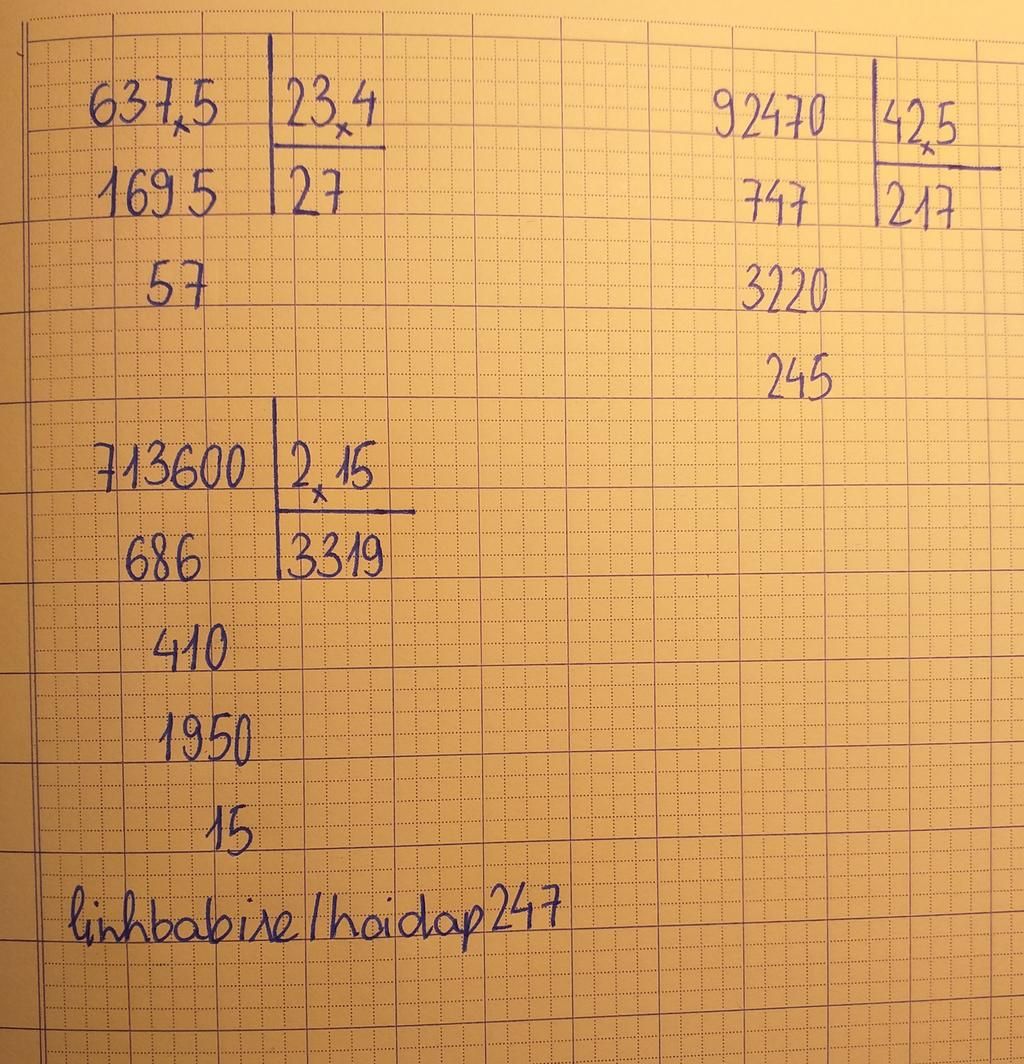 637,5 23,4
1695 27
57
92470 42,5
747 217
3220
245
713600 2,15
686 3319
410
1950
15
linhbabixe/hoidap247